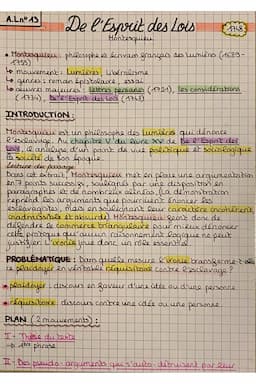 A.L n°13
De l'Esprit des Lois
Montesquieu
1748
• Montesquieu : philosophe et écrivain français des Lumières (1689-
1755)
↳ mouvement : Lumières, libéralisme
↳ genres : roman épistolaire, essai
↳ œuvres majeures : lettres persanes (1721), les considérations
(1734), De l'Esprit des lois (1748)
INTRODUCTION :
Montesquieu est un philosophe des lumières qui dénonce
l'esclavage. Au chapitre V du livre XV de De l'Esprit des
Lois, il analyse d'un point de vue politique et sociologique
la société de son époque.
Lecture du passage
Dans cet extrait, Montesquieu met en place une argumentation
en 7 points successifs, soulignés par une disposition en
paragraphes et de nombreux alinéas. La démonstration
reprend les arguments que pourraient énoncer les
esclavagistes, mais en soulignant leur caractère incohérent,
inadmissible et absurde. Montesquieu feint donc de
défendre le commerce triangulaire pour mieux dénoncer
cette pratique qu'aucun raisonnement logique ne peut
justifier. L'ironie joue donc un rôle essentiel.
PROBLÉMATIQUE : Dans quelle mesure l'ironie transforme-t-elle
ce plaidoyer en véritable réquisitoire contre l'esclavage ?
• plaidoyer : discours en faveur d'une idée ou d'une personne
• réquisitoire : discours contre une idée ou une personne.
PLAN (2 mouvements) :
I - Thèse du texte
↳ 1ère phrase
II - Des pseudo-arguments qui s'auto-détruisent par leur